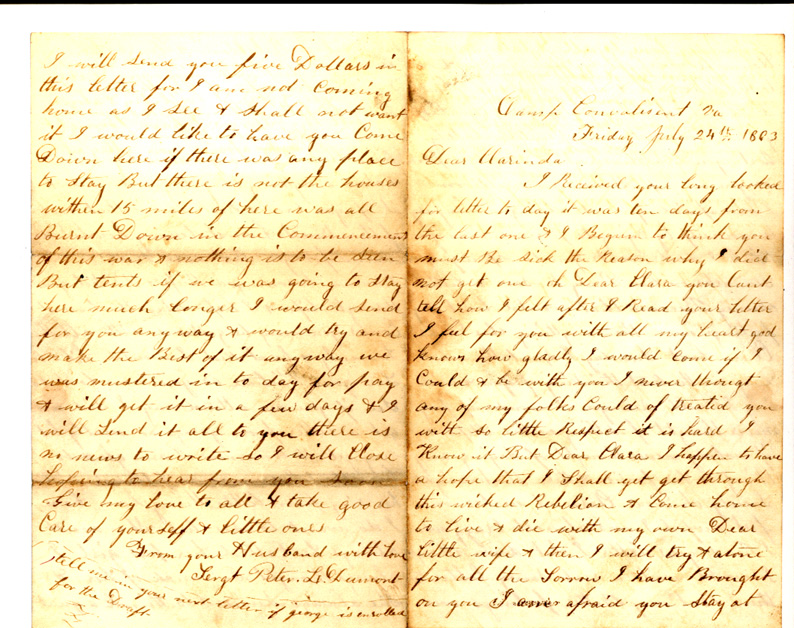 Camp Convalisent Va
Friday July 24th 1863
Dear Clarinda
I Recived your long looked
for letter to day it was ten days from
the last one & I Begun to think you
must be sick the Reason why I did
not get one oh Dear Clara you Cant
tell how I felt after I Read your letter
I feel for you with all my heart god
knows how gladly I would Come if I
Could & be with you I never thougt
any of my folks Could of treated you
with so little Respect it is hard I
Know it But Dear Clara I happen to have
a hope that I Shall yet get through
this wicked Rebelion & Come home
to live & die with my own Dear
little wife & then I will try & atone
for all the Sorrow I have Brought
on you I am afraid you Stay at
I will send you five Dollars in
this letter for I am not Coming
home as I see & shall not want
it I would like to have you Come
Down here if there was any place
to stay But there is not the houses
within 15 miles of here was all
Burnt Down in the Commencement
of this war & nothing is to be seen
But tents if we was going to stay
here much longer I would send
for you any way & would try and
make the Best of it any way we
was mustered in to day for pay
& will get it in a few days & I
will send it all to you there is
no news to write so I will Close
hoping to hear from you soon
Give my love to all & take good
Care of yourself & little ones
From your Husband with love
Sergt Peter. L. Dumont
tell me in your next letter if george is enrolled
for the Draft